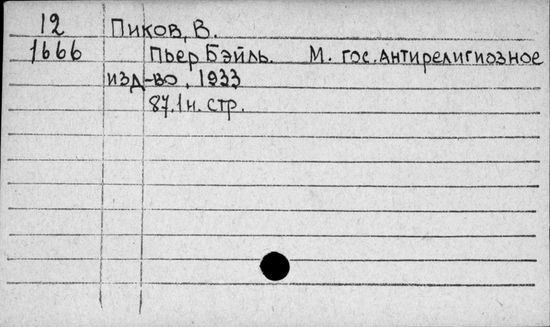 12 Пиков, В.
1666 Пьер Бэйль. М. гос. Антирелигиозное
изд-во, 1933
87.1н. стр.